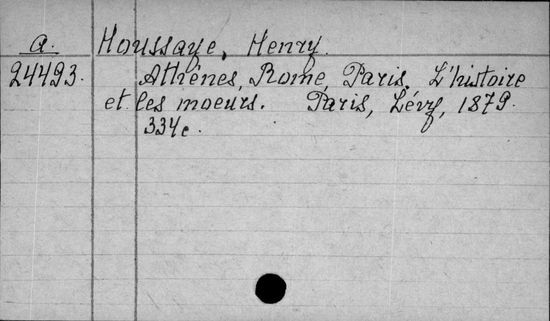 a. Houssaye, Henry.
24493. Athênes, Rome, Paris, L'histoire
et les moeurs. Paris, Lévy, 1879.
334c.